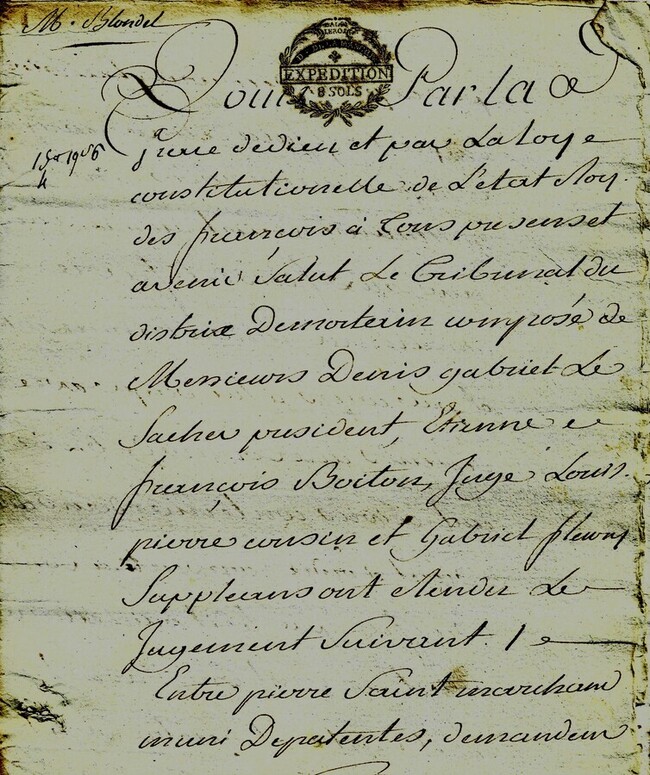 M. Blondel
EXPEDITION
8 SOLS
Louis Par la
grace de dieu et par La Loy
constitutionelle de L'etat Roy
des françois à Tous presens et
avenir Salut Le Tribunal du
district De mortain composé de
Messieurs Denis gabriel Le
Sacher president, Etienne
françois Boiton, Juge Louis
pierre cousin et Gabriel fleury
Suppleans ont Rendu Le
Jugement Suivant.
Entre pierre Saint marchand
muni De patentes, demandeur